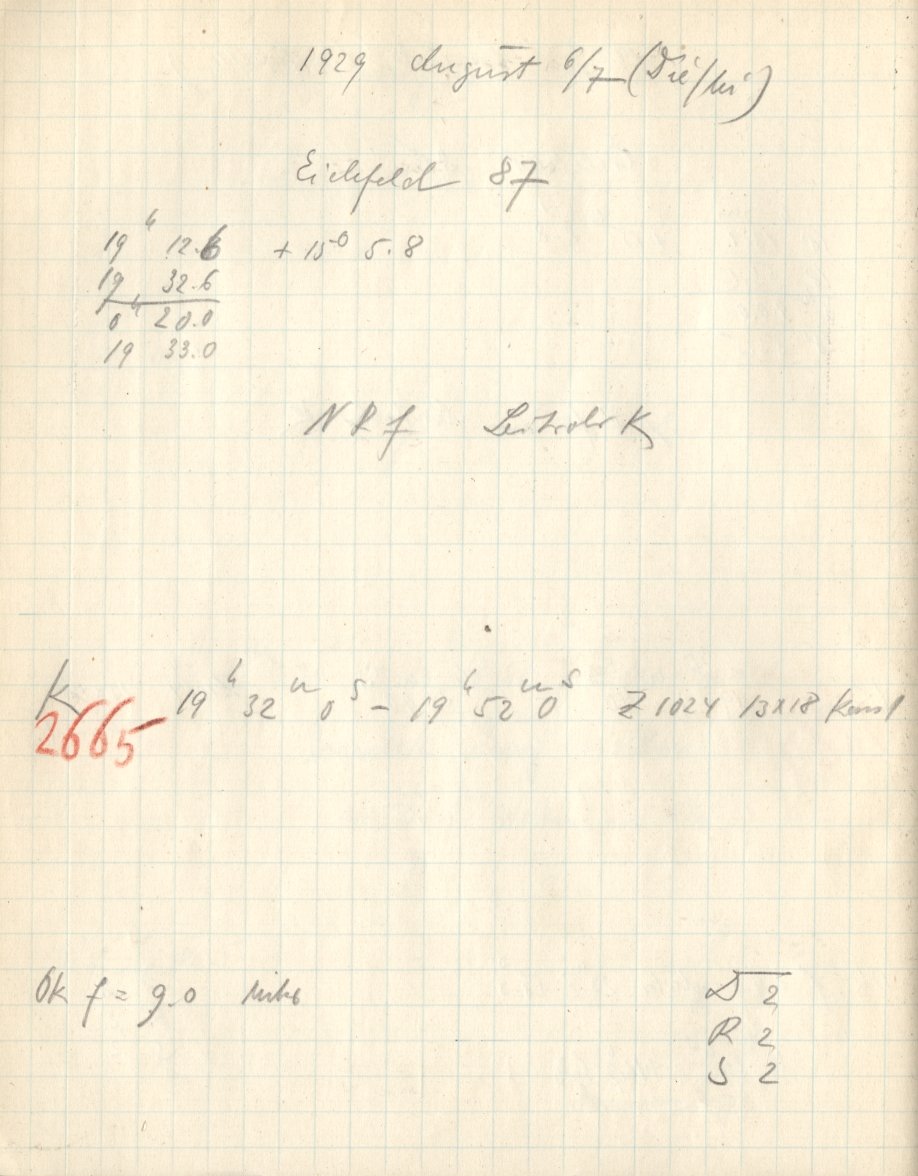 1929 August 6/7 (Die/Mi)
Eichfeld 87
19ʰ 12.6 + 15° 5.8
19 32.6
0ʰ 20.0
19 33.0
N R f Leitrohr K
K
2665 19ʰ 32ᵐ 0ˢ – 19ʰ 52ᵐ 0ˢ Z 1024 13x18
Ok f = 9.0
D 2
R 2
S 2